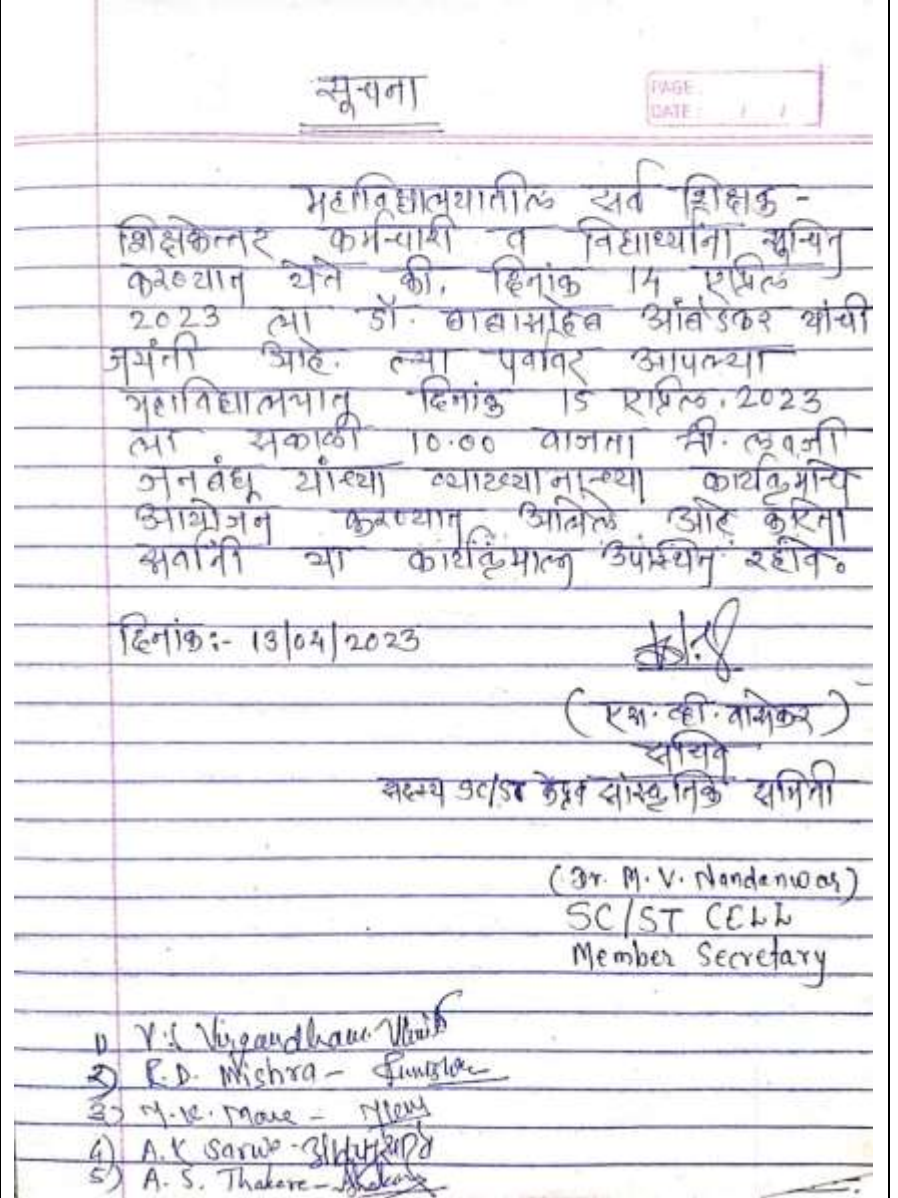 सूचना
PAGE :
DATE : / /
महाविद्यालयातील सर्व शिक्षक -
शिक्षकेत्तर कर्मचारी व विद्यार्थ्यांना सूचित
करण्यात येते की, दिनांक 14 एप्रिल
2023 ला डॉ. बाबासाहेब आंबेडकर यांची
जयंती आहे. त्या पर्वावर आपल्या
महाविद्यालयात दिनांक 15 एप्रिल, 2023
ला सकाळी 10.00 वाजता श्री.
जनबंधू यांच्या व्याख्यानाच्या कार्यक्रमाचे
आयोजन करण्यात आलेले आहे करिता
सर्वांनी या कार्यक्रमाला उपस्थित रहावे.
दिनांक:- 13/04/2023
(एस. व्ही. वासेकर)
सचिव
सदस्य SC/ST सांस्कृतिक समिती
(Dr. M. V. Nandanwar)
SC/ST CELL
Member Secretary
1)
2) R.D. Mishra -
3) M.K. More -
4) A.K Sarwe -
5) A. S. Thakare -